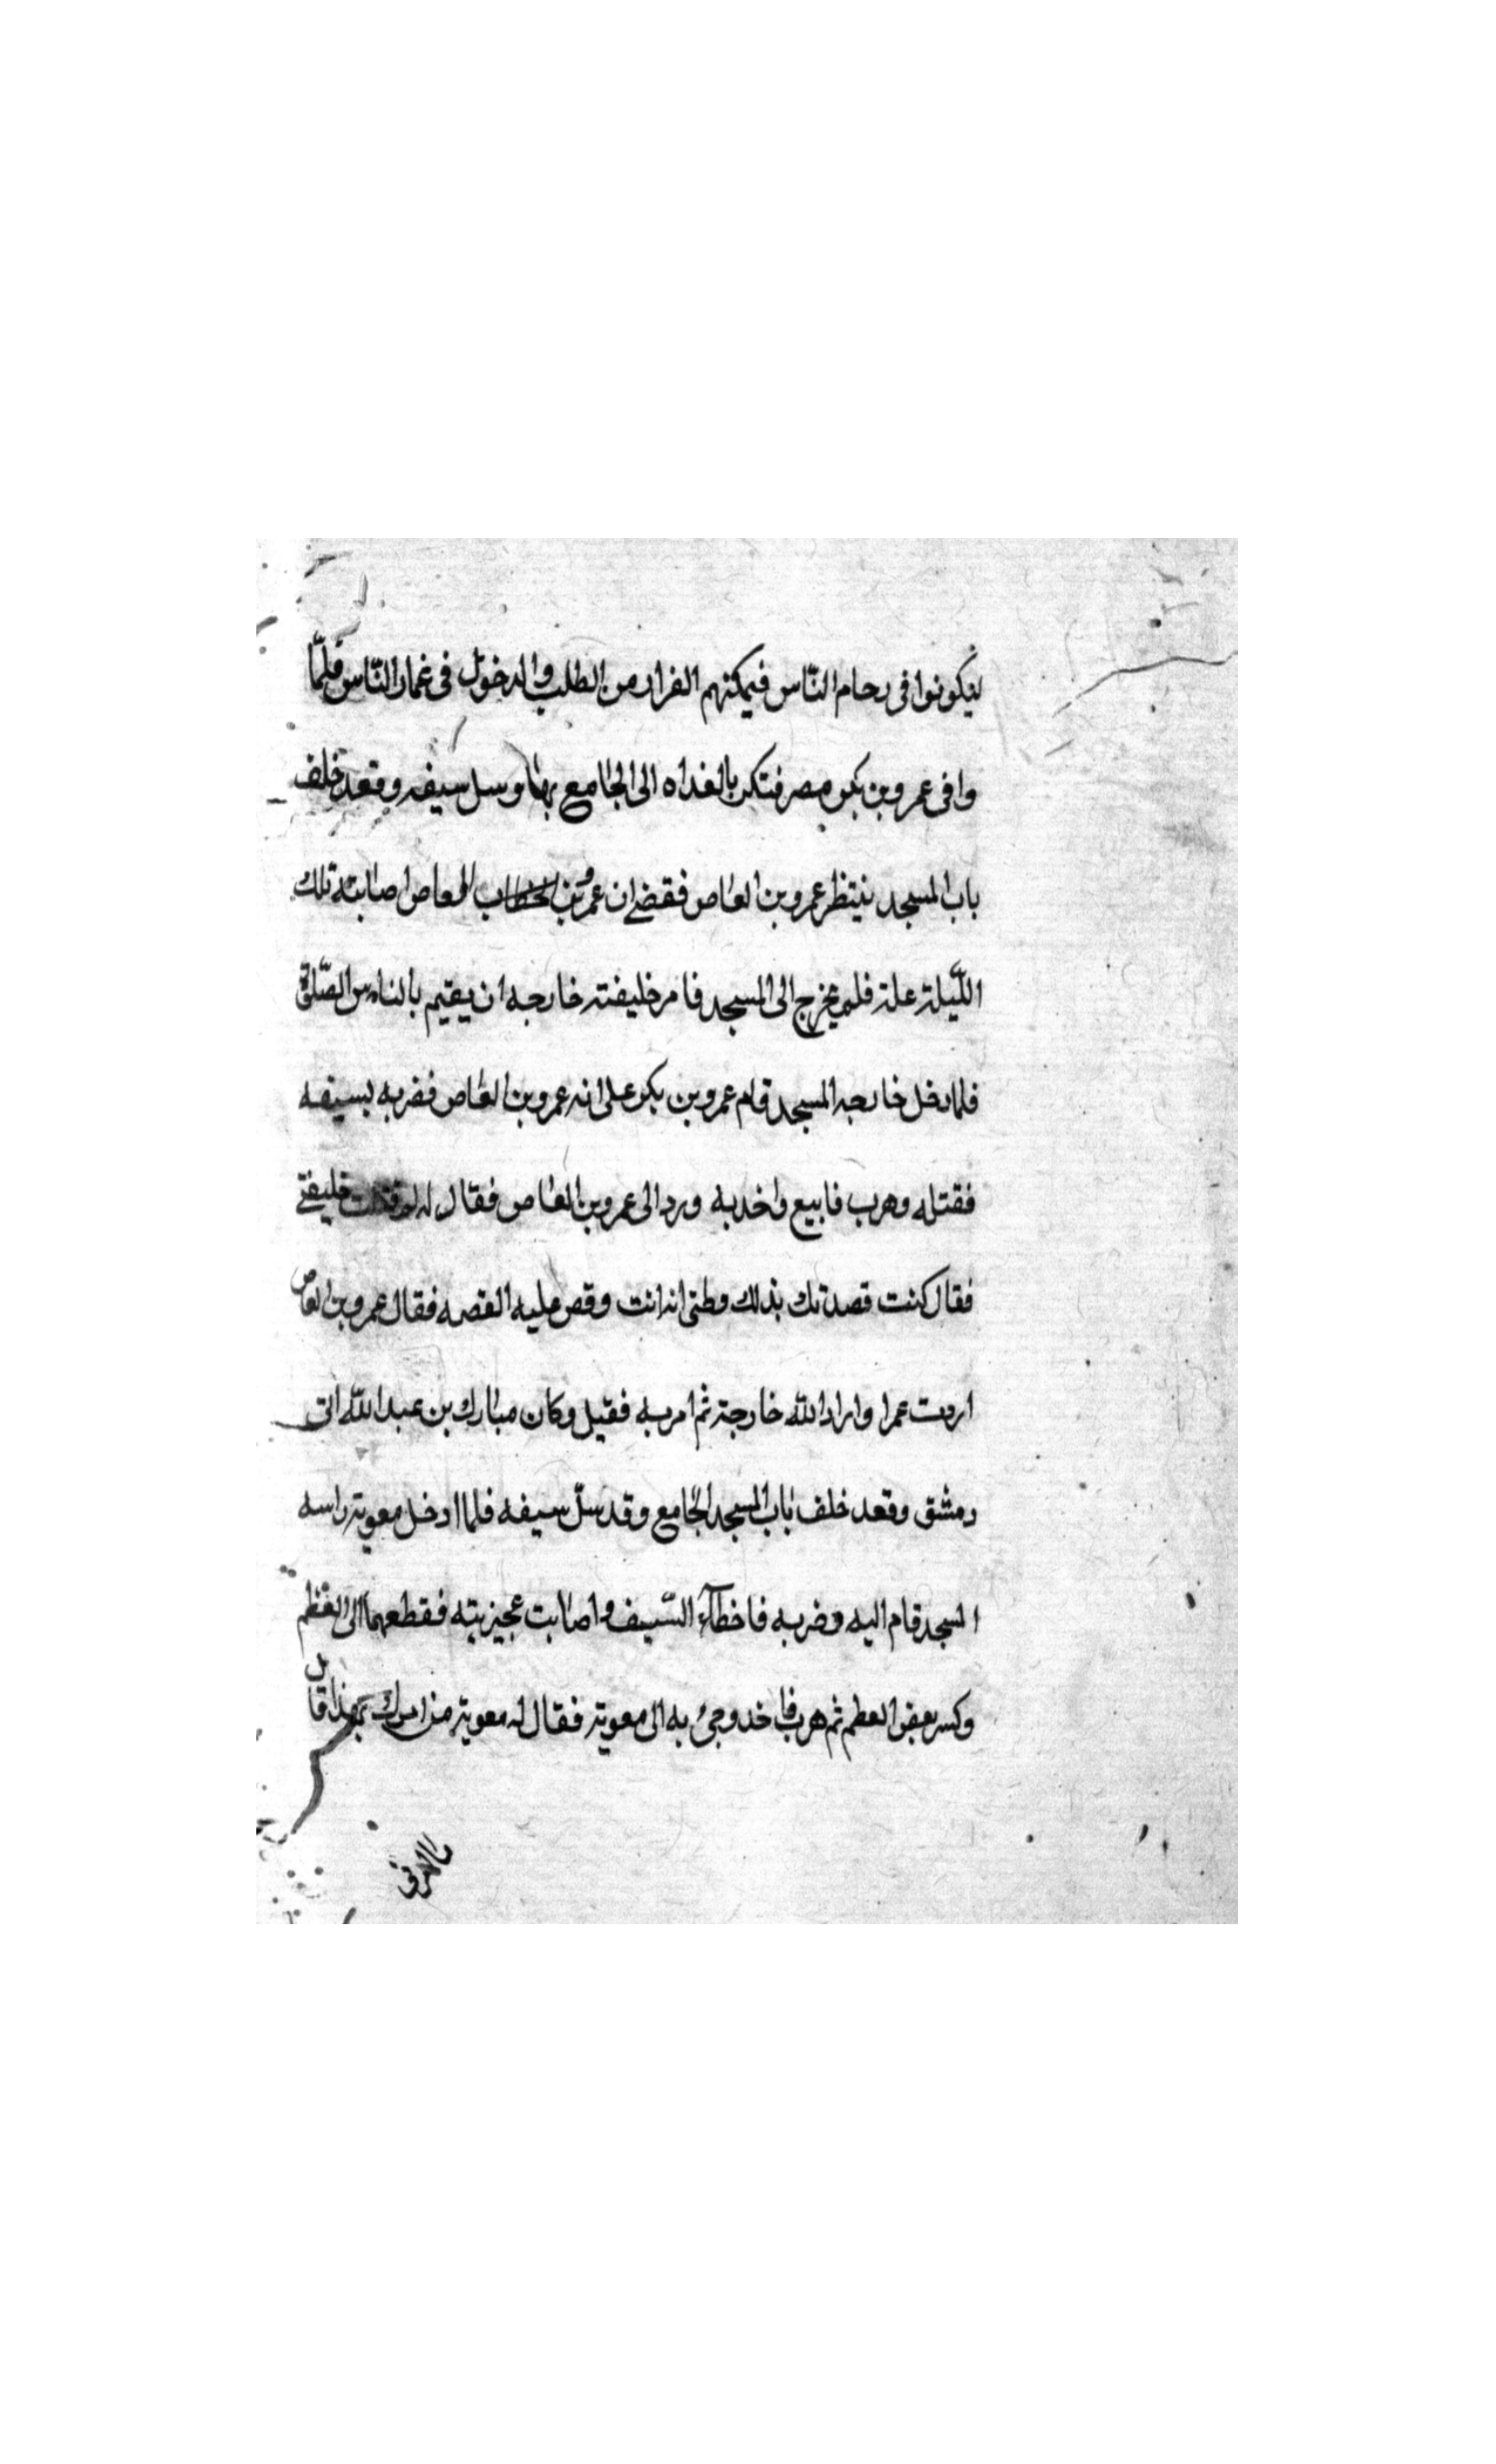 ليكونوا فى زحام النّاس فيمكنهم الفرار من الطلب والدخول فى غمار النّاس فلمّا
وافى عمرو بن بكر مصر فتكر بالغداه الى الجامع بها وسل سيفه وقعد خلف
باب المسجد ننتظر عمرو بن العاص فقضى ان عمرو بن العاص اصابته تلك
اللّيلة علة فلم يخرج الى المسجد فامر خليفته خارجه ان يقيم بالناس الصّلوة
فلما دخل خارجه المسجد قام عمرو بن بكر على انه عمرو بن العاص فضربه بسيفه
فقتله وهرب فابيع واخد به ورد الى عمرو بن العاص فقال له لم قتلت خليفتى
فقال كنت قصدتك بذلك وطنى انه انت وقص عليه القصه فقال عمرو بن العاص
اردت عمرا واراد اللّه خارجة ثم امر به فقيل وكان مبارك بن عبد اللّه اتى
دمشق وقعد خلف باب المسجد الجامع وقد سلّ سيفه فلما ادخل معوية راسه
المسجد قام اليه وضربه فاخطآء السّيف واصابت عجيزيته فقطعهما الى العظم
وكسر بعض العظم ثم هرب فاخد وجئ به الى معوية فقال له معوية من امرك بهذا قال